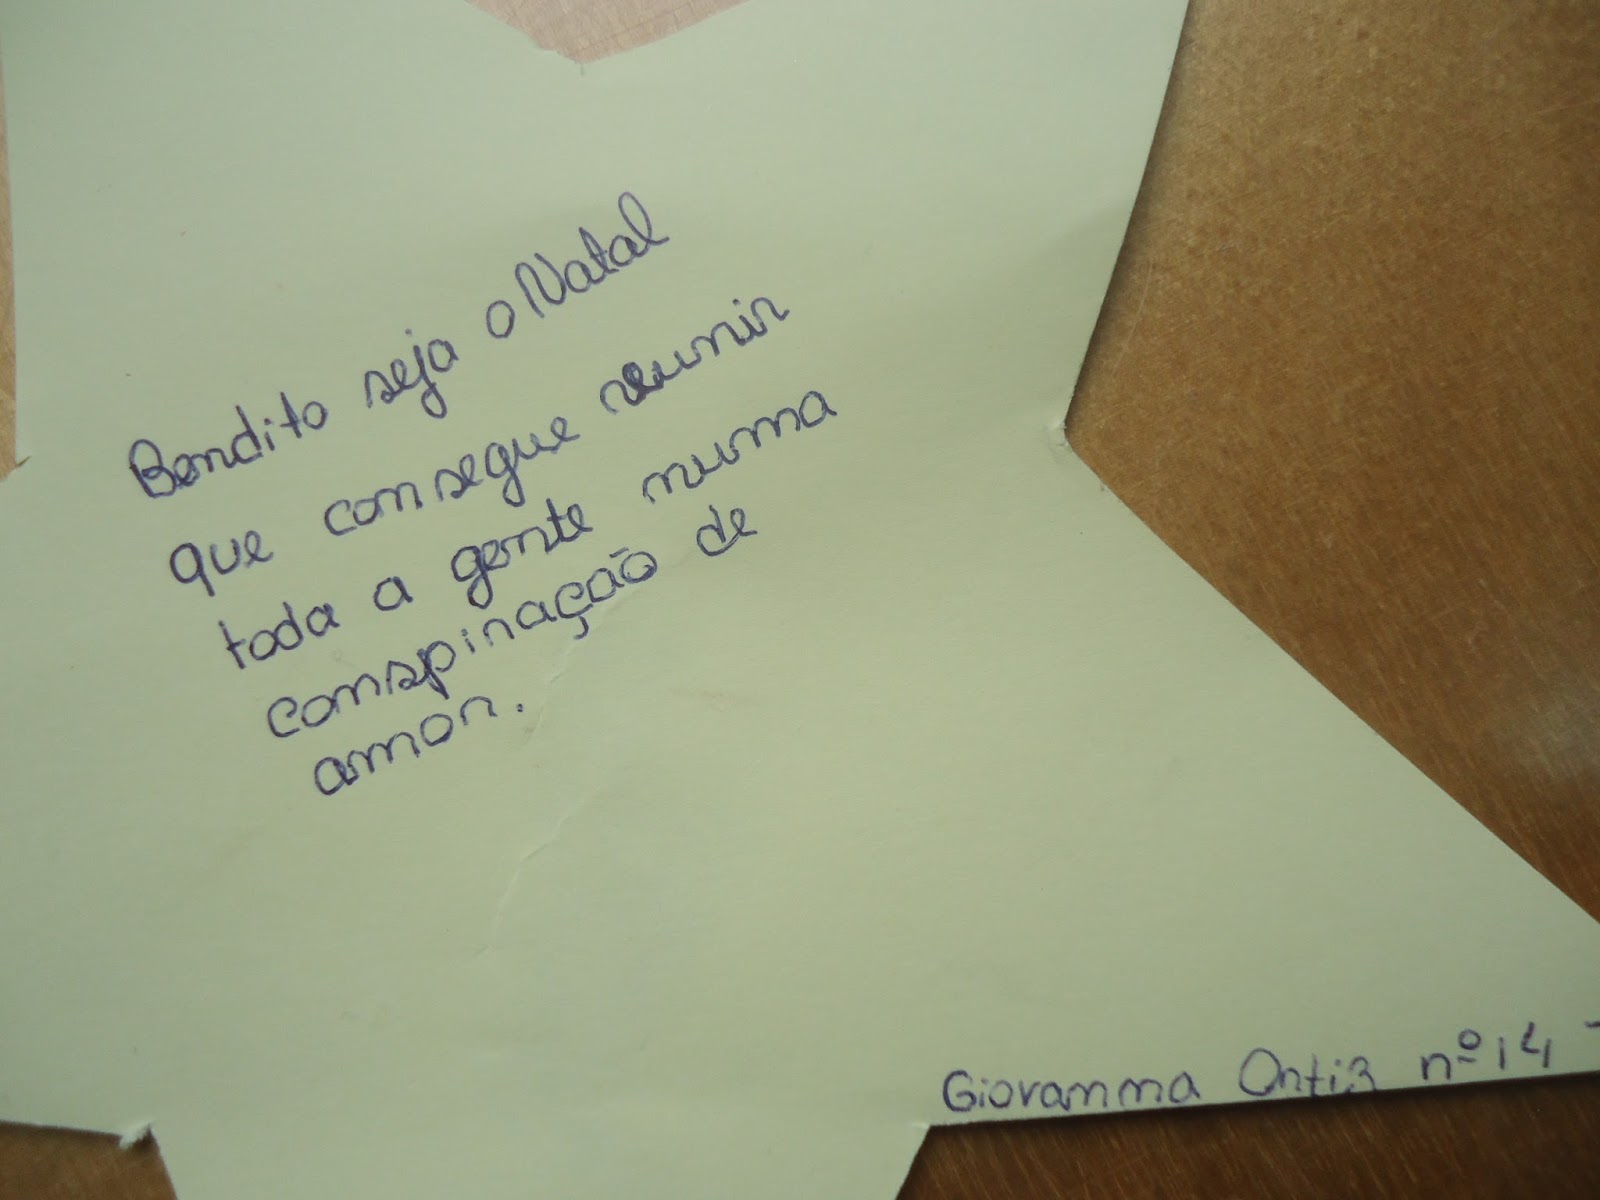 Bendito seja o Natal
que consegue reunir
toda a gente numa
conspiração de
amor.
Giovanna Ortiz nº 14